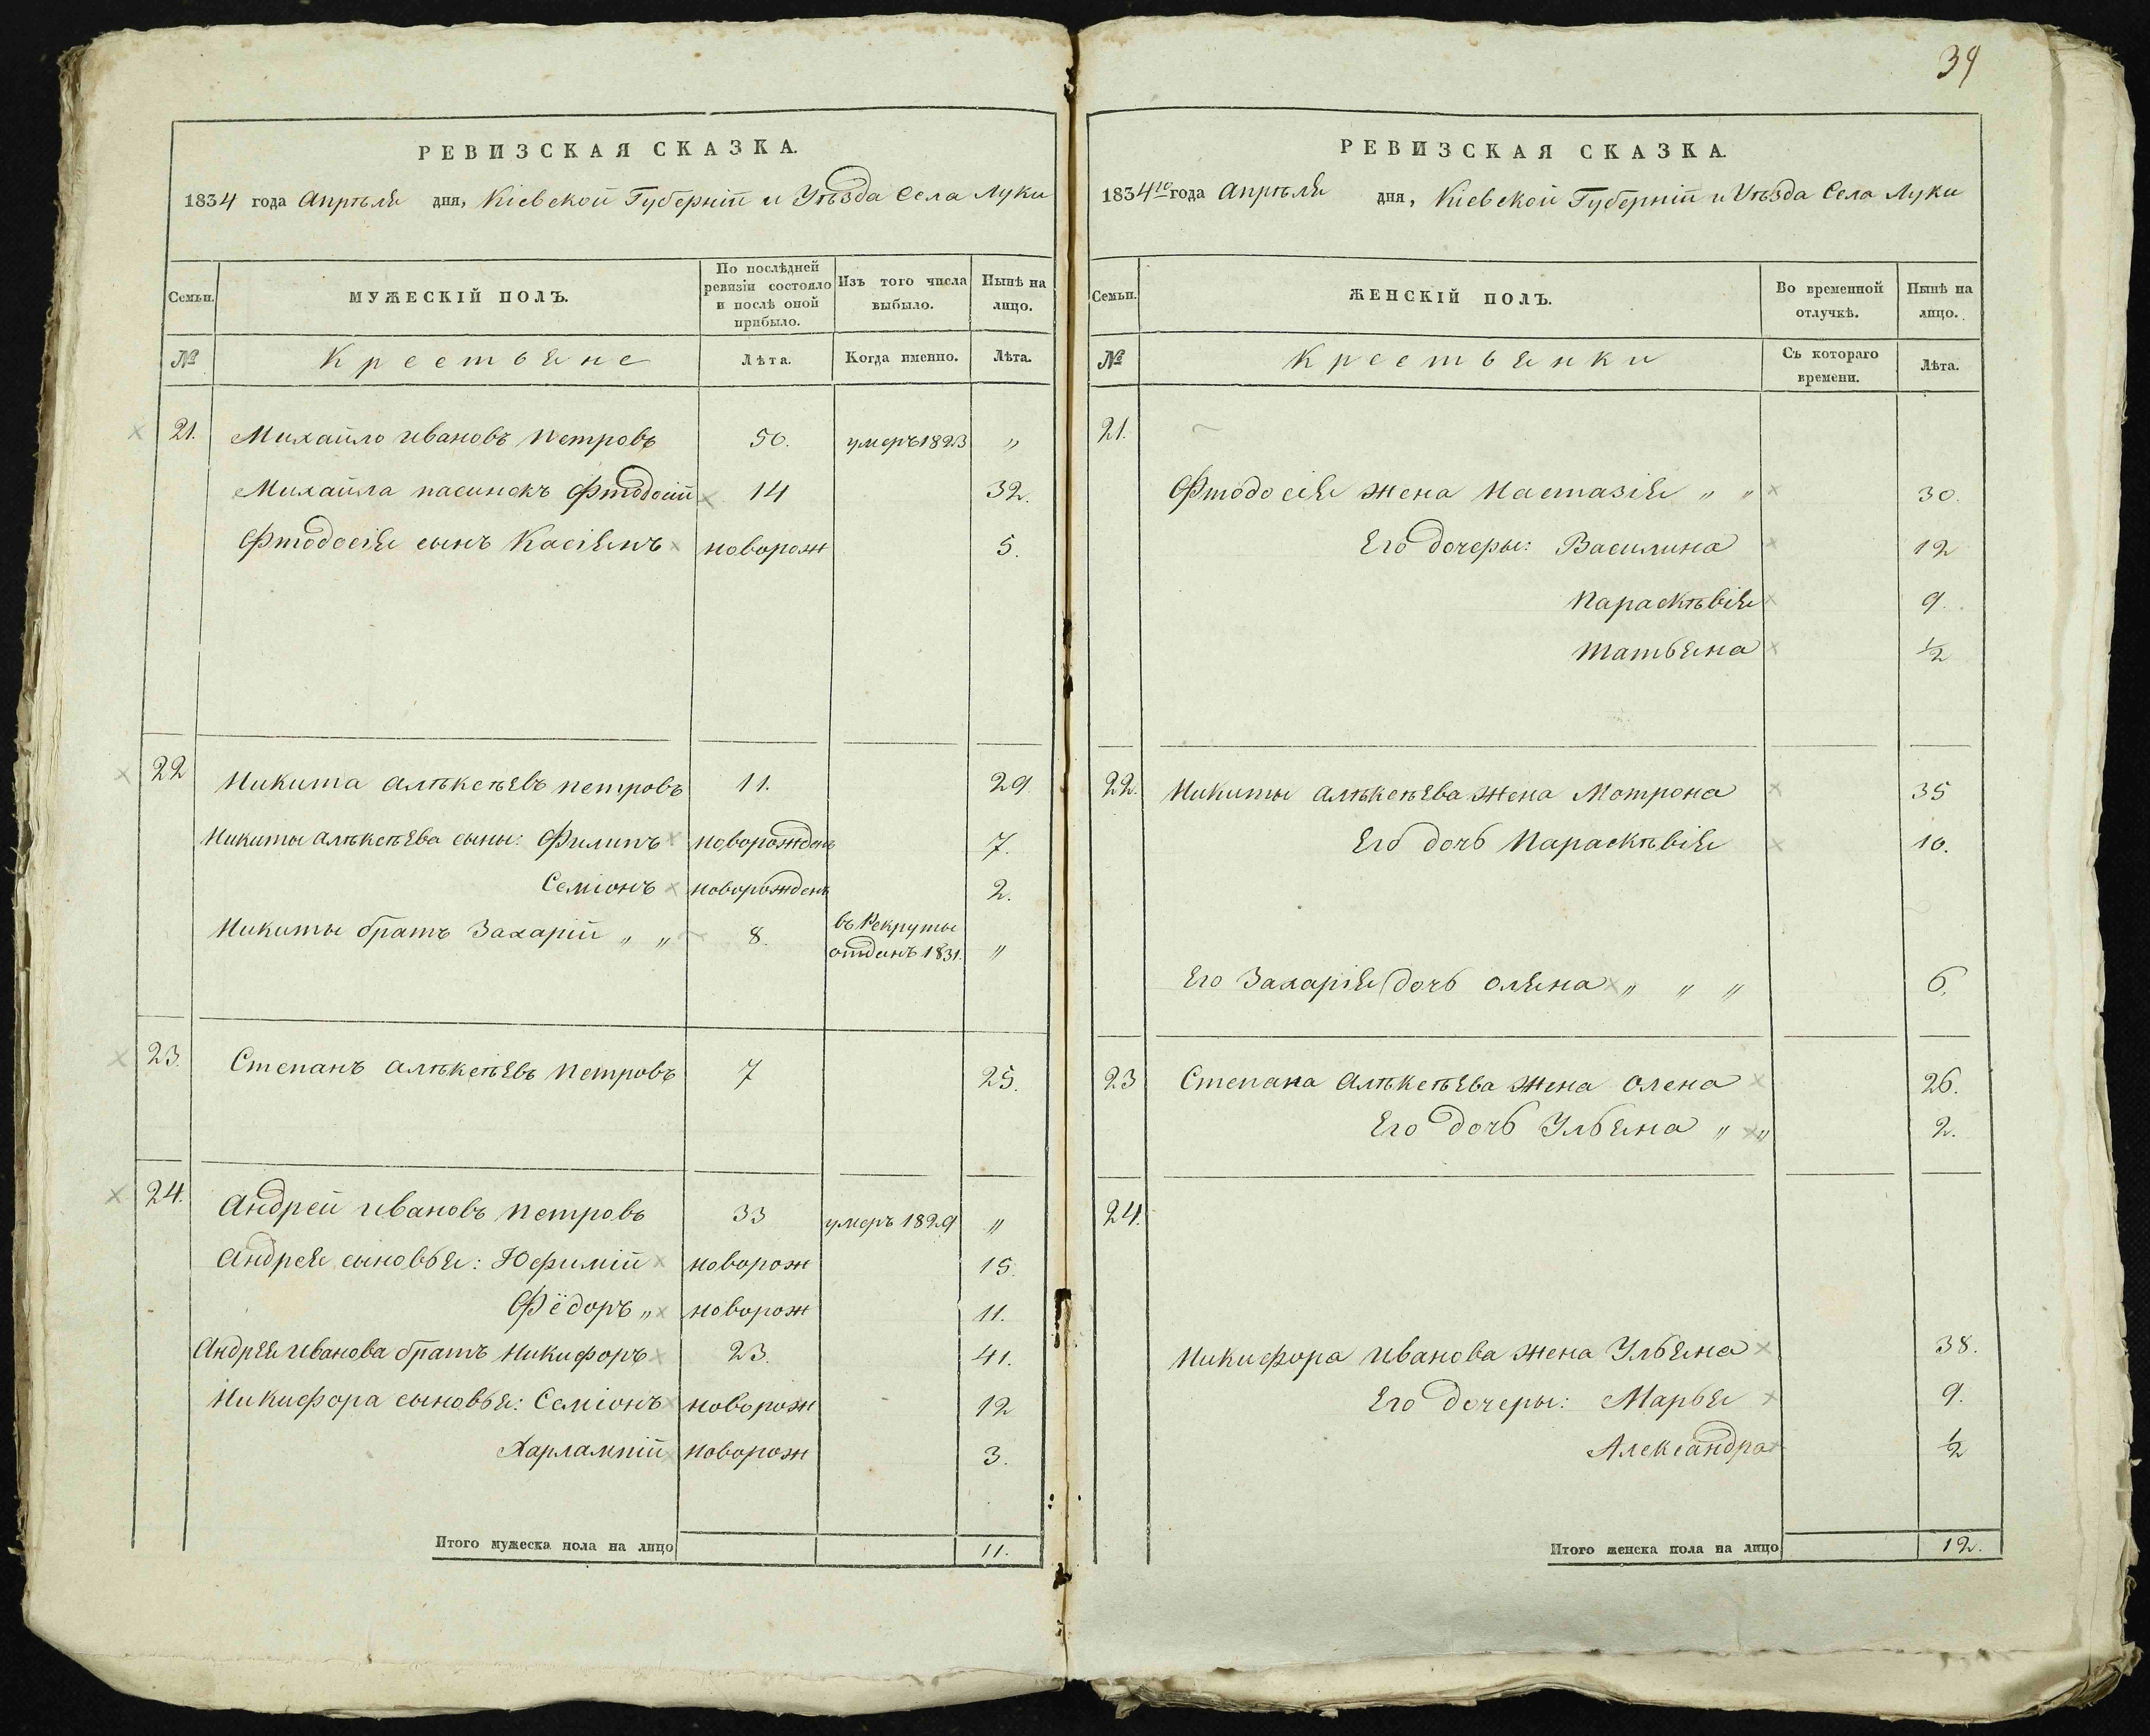 39
РЕВИЗСКАЯ СКАЗКА.
1834 года Апрѣля дня, Кіевской Губерніи и Уѣзда Села Луки
Семьи. МУЖЕСКІЙ ПОЛЪ. По послѣдней ревизіи состояло и послѣ оной прибыло. Изъ того числа выбыло. Нынѣ на лицо.
№ Крестьяне Лѣта. Когда именно. Лѣта.
21. Михайло Ивановъ Петровъ 50. умеръ 1823 „
Михайла пасинокъ Фтодосій 14 32.
Фтодосія сынъ Касіянъ новорож 5.
22 Никита Алѣксѣевъ Петровъ 11. 29
Никиты Алѣксѣева сыны: Филипъ новорожденъ 7.
Семіонъ новорожденъ 2.
Никиты братъ Захарій „ „ 8. въ Рекруты отданъ 1831. „
23. Степанъ Алѣксѣевъ Петровъ 7 25.
24. Андрей Ивановъ Петровъ 33 умеръ 1829 „
Андрея сыновья: Юфимій новорож 15.
Фёдоръ „ новорож 11.
Андрея Иванова братъ Никифоръ 23. 41.
Никифора сыновья: Семіонъ новорож 12
Харлампій новорож 3.
Итого мужеска пола на лицо 11.
РЕВИЗСКАЯ СКАЗКА.
1834 10 года Апрѣля дня, Кіевской Губерніи и Уѣзда Села Луки
Семьи. ЖЕНСКІЙ ПОЛЪ. Во временной отлучкѣ. Нынѣ на лицо.
№ Крестьянки Съ котораго времени. Лѣта.
21.
Фтодосія жена Настазія „ „ 30.
Его дочеры: Василина 12
Параскѣвія 9.
Татьяна ½
22. Никиты Алѣксѣева жена Мотрона 35
Его дочь Параскѣвія 10.
Его Захарія дочь Оляна „ „ „ 6.
23 Степана Алѣксѣева жена Олена 26.
Его дочь Ульяна „ „ 2.
24.
Никифора Иванова жена Ульяна 38.
Его дочеры: Марья 9.
Александра ½
Итого женска пола на лицо 12.